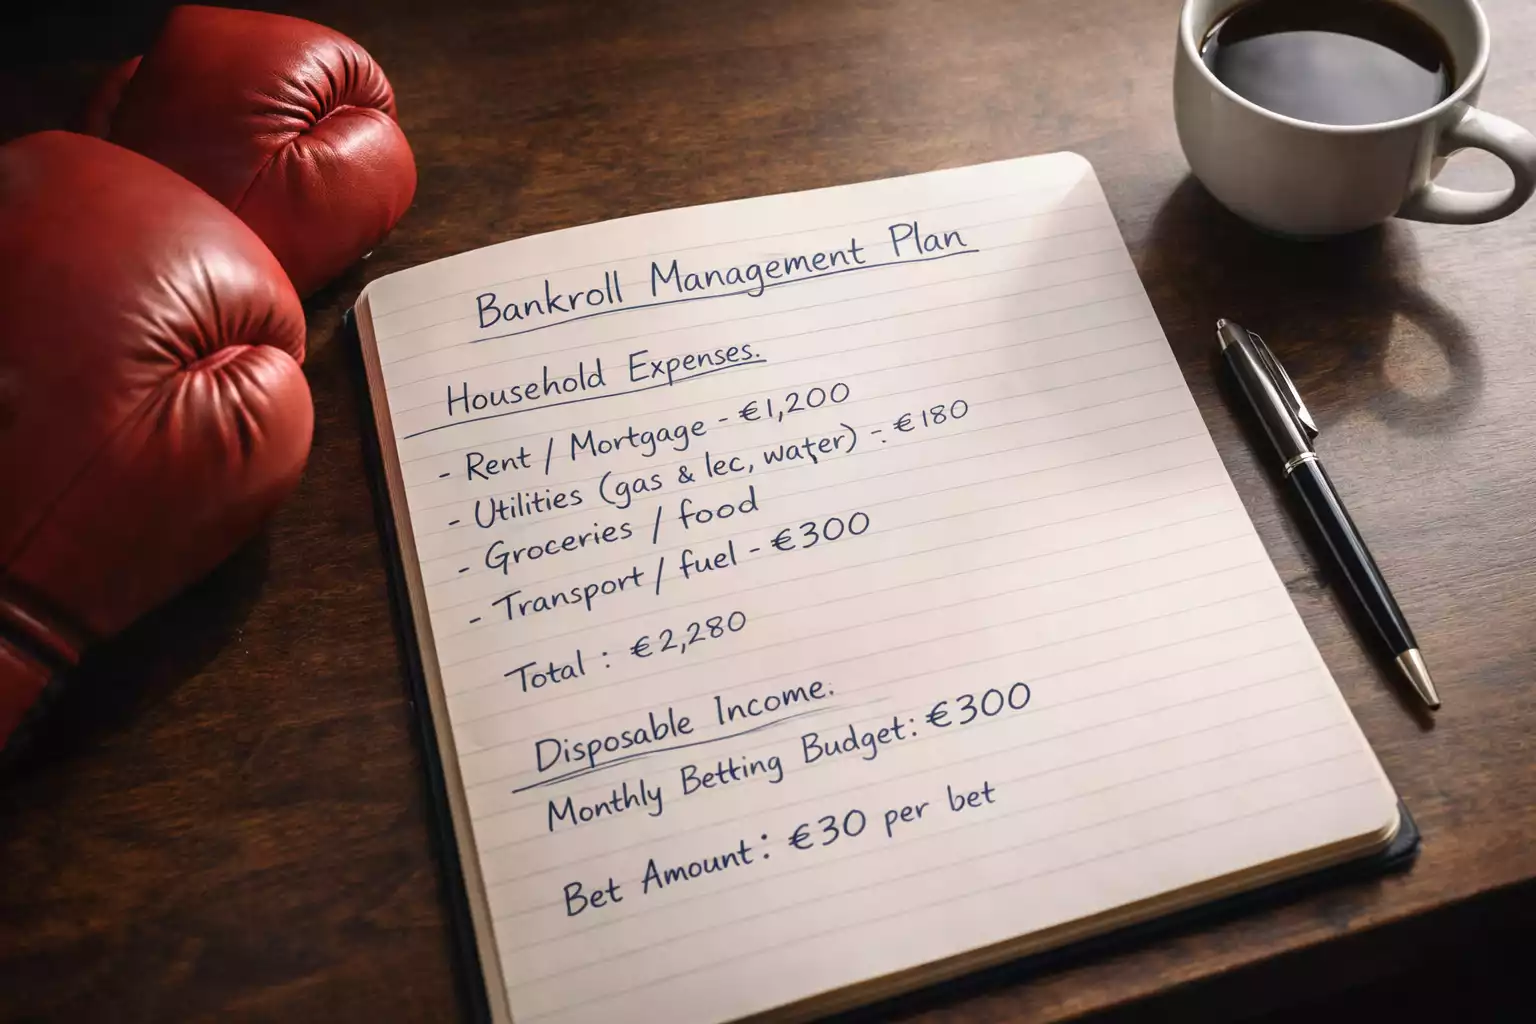 Bankroll Management Plan
Household Expenses.
- Rent / Mortgage - €1,200
- Utilities (gas & lec, water) - €180
- Groceries / food
- Transport / fuel - €300
Total : €2,280
Disposable Income:
Monthly Betting Budget: €300
Bet Amount: €30 per bet